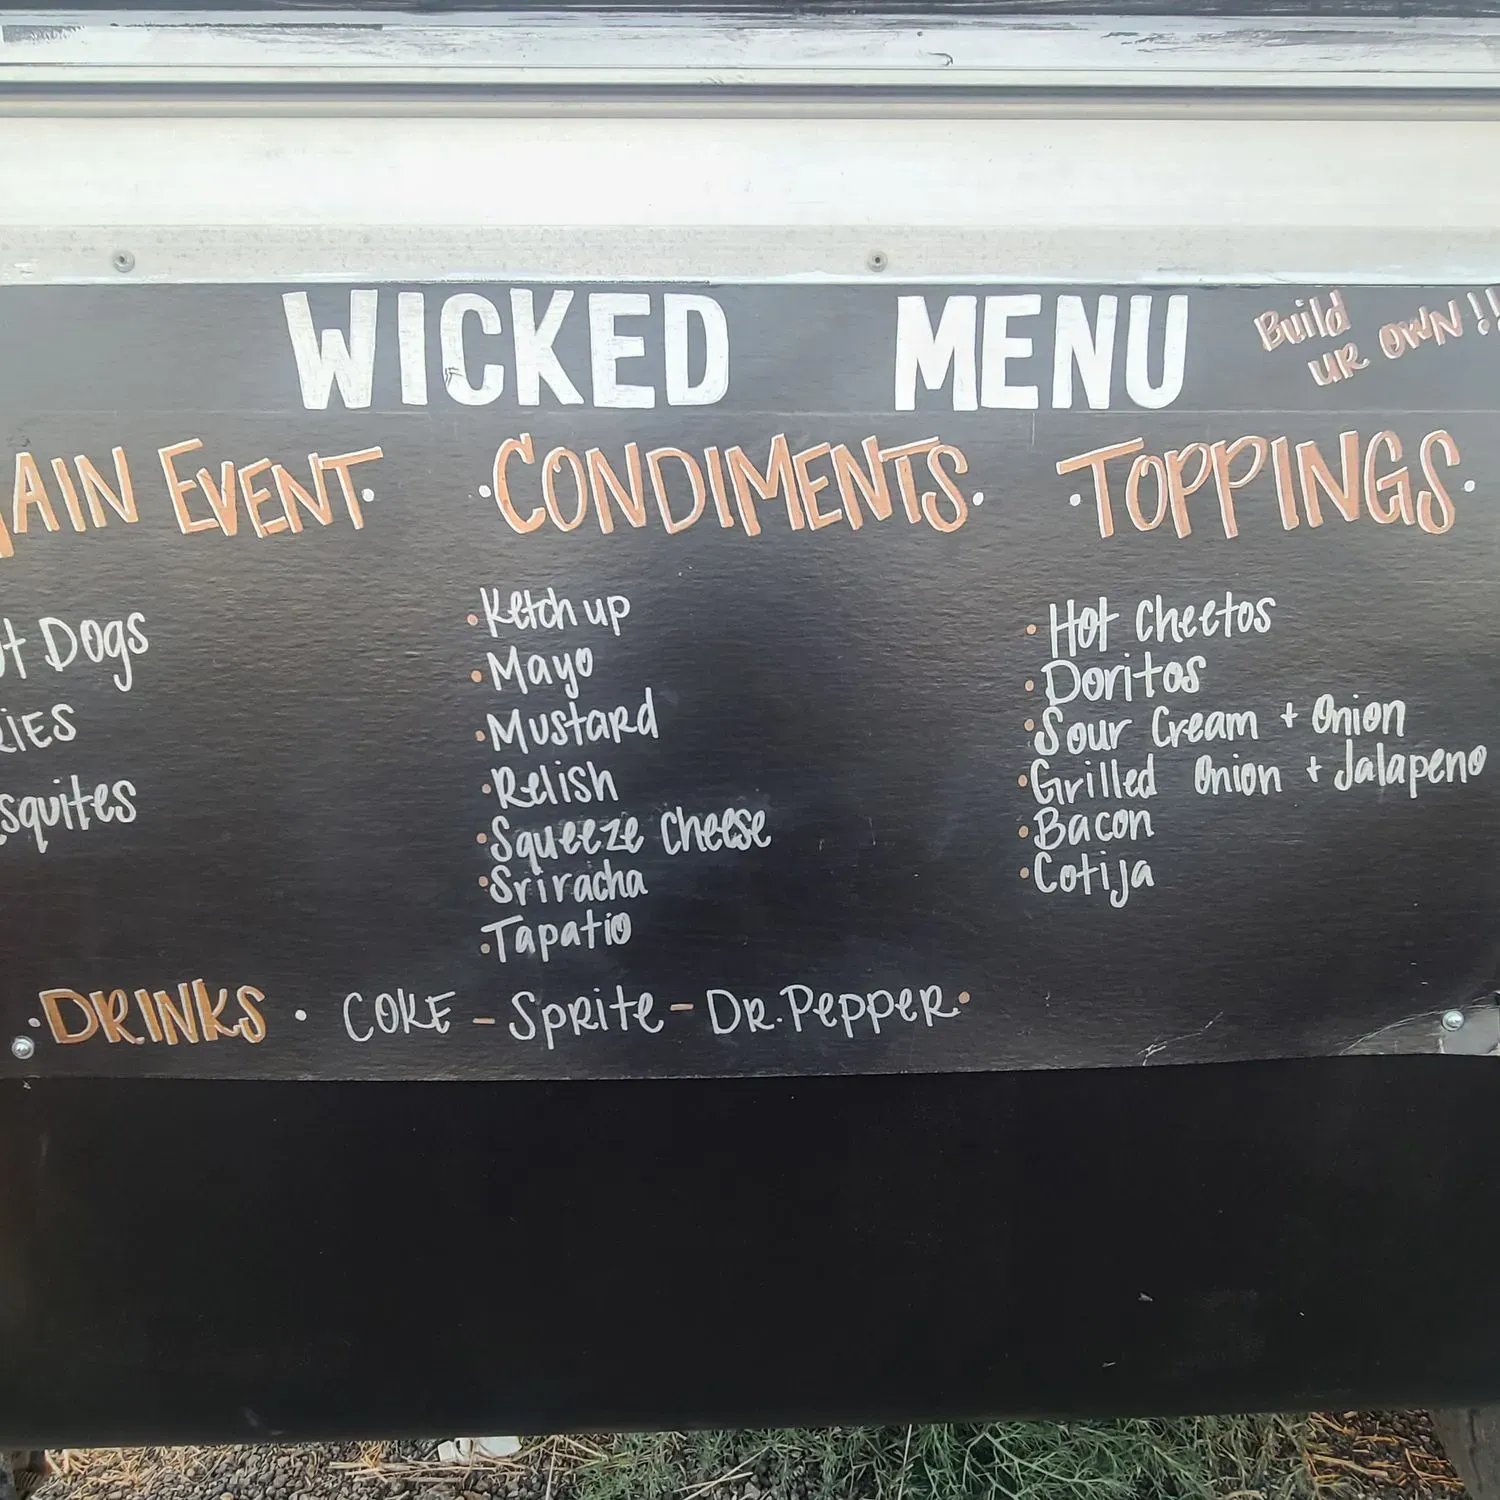 WICKED MENU
Build
UR OWN!!
AIN EVENT.
ot Dogs
RIES
squites
·CONDIMENTS·
·Ketchup
·Mayo
·Mustard
·Relish
·Squeeze Cheese
·Sriracha
·Tapatio
·TOPPINGS·
·Hot Cheetos
·Doritos
·Sour Cream + Onion
·Grilled Onion + Jalapeno
·Bacon
·Cotija
·DRINKS · COKE - Sprite - DR. Pepper·